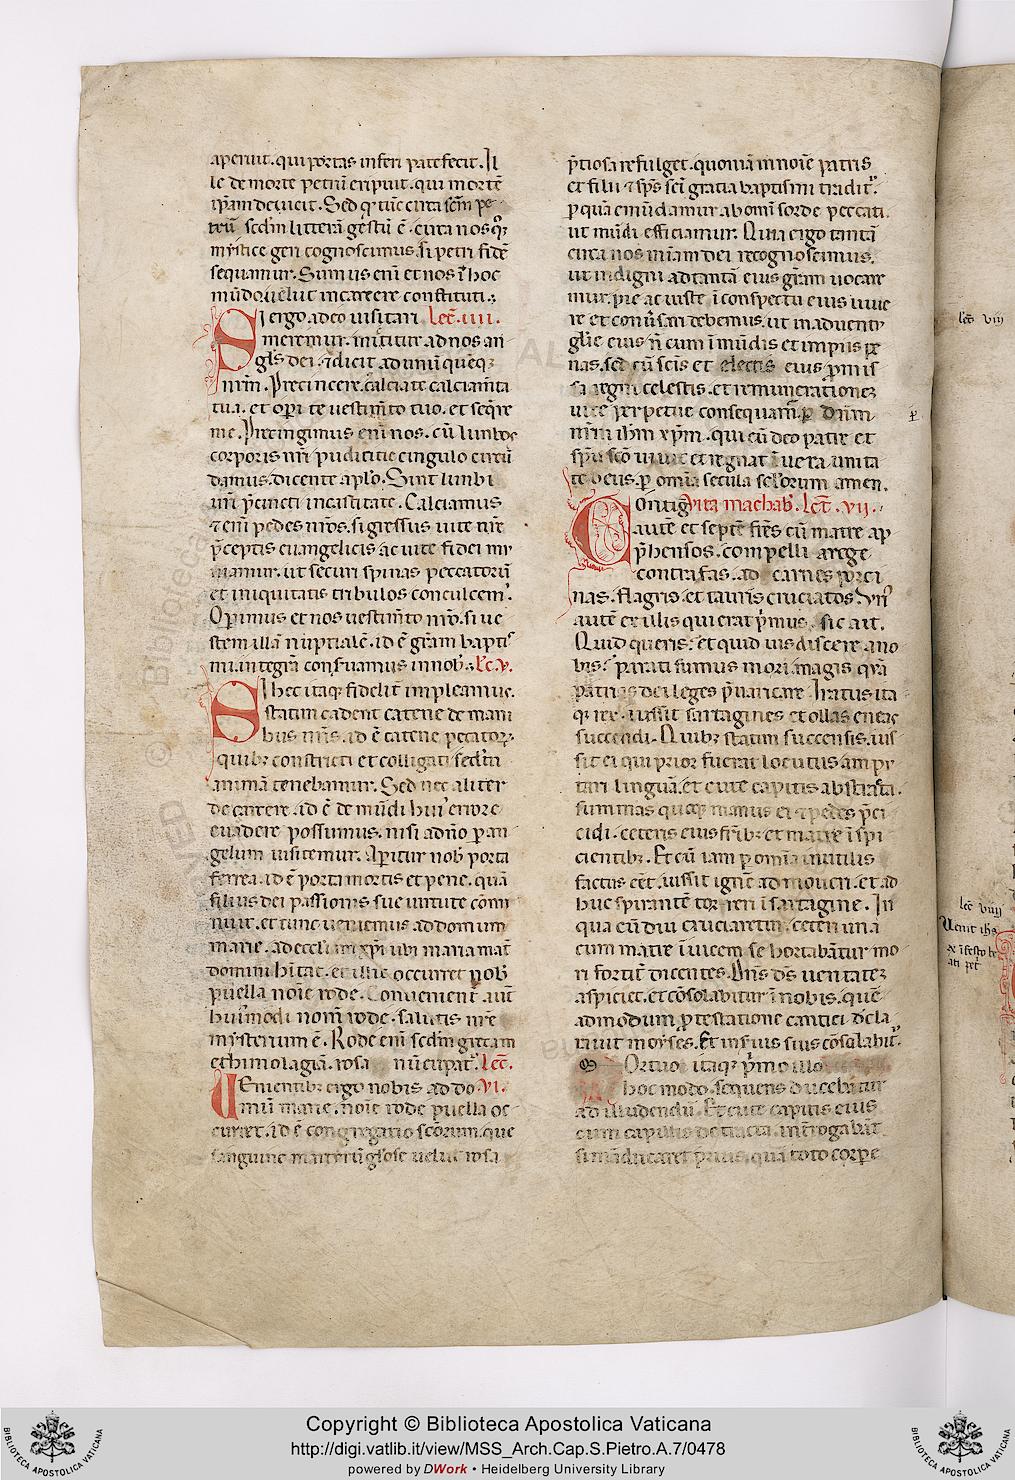 aperuit. qui portas inferi patefecit. Il
le de morte petrū eripuit. qui mortē
ip̄am deuicit. Sed qͥ tūc circa sc̄m pe
trū scd̄m litterā gestū ē. circa nos qͦꝫ
mystice geri cognoscimus. si petri fidē
sequamur. Sumus eni et nos ī hoc
mūdo uelut in carcere constituti.
Si ergo adeo uisitari lec̄. iiii.
meremur. mittitur ad nos an
gl̓s dei. ⁊ dicit ad unū quēqꝫ
nr̄m. Precincere. calciate calciam̄ta
tua. et oꝑi te uestim̄to tuo. et seqͬre
me. Precingimus eni nos. cū lūbos
corporis nr̄i pudicitie cingulo circū
damus. dicente apl̓o. Sint lumbi
ur̄i p̄cincti in castitate. Calciamus
⁊ eni pedes nr̄os. si gressus uite nr̄e
p̄ceptis euangelicis ac uite fidei mu
niamur. ut securi spinas peccatorū
et iniquitatis tribulos conculcemꝰ.
Oꝑimus et nos uestim̄to nr̄o. si ue
stem illā nuptialē. id ē gr̄am bapti
smi. integrā conẜuamus in nob̓. lec̄. v.
Si hec itaqꝫ fideliť impleamus.
statim cadent catene de mani
bus nr̄is. id ē catene peccatoꝝ.
quibꝫ constricti et colligati scd̄m
animā tenebamur. Sed nec aliter
de carcere. id ē de mūdi huiꝰ errore
euadere possumus. nisi a dn̄o ꝑ an
gelum uisitemur. Aperitur nob̓ porta
ferrea. id ē porta mortis et pene. quā
filius dei passionis sue uirtute cōmi
nuit. et tunc ueniemus ad domum
marie. ad eccl̓iam xp̄i ubi maria mat̄
domini hītat. et illic occurret ꝑ ob̓
puella noīe rode. Conuenient̄ aut̄
huiꝰmodi nom̄ rode. salutis nr̄e
mysterium ē. Rode eni scd̄m grecam
ethimologiā. rosa nūcupat̄. lec̄.
Uenientibꝫ ergo nobis ad do vi.
mū marie. noīe rode puella oc
curret. id ē congregatio sc̄orum. que
sanguine martirū gl̓ose uelut rosa
p̄tiosa refulget. quoniā in noīe patris
et filii ⁊ sp̄s sc̄i gratia baptismi tradit̄.
ꝑ quā emūdamur ab omi sorde peccati.
ut mūdi efficiamur. Quia ergo tantā
circa nos mīam dei recognoscimus.
ut indigni ad tantā eius gr̄am uocare
mur. pie ac iuste ī conspectu eius uiue
re et conūsari debemus. ut in aduentu
gl̓ie eius n̄ cum īmūdis et impiis pe
nas. sed cū sc̄is et electis eius promis
sa regni celestis. et remunerationeꝫ
uite perpetue consequam̄. ꝑ dn̄m
nr̄m ih̄m xp̄m. qui cū deo patre et
sp̄u sc̄o uiuit et regnat ī uera unita
te deus. ꝑ omīa secula scl̓orum amen.
Contigit vita machab̓. lec̄. vii.
autē et septē fr̄es cū matre ap
p̄hensos. compelli a rege
contra fas. ad carnes porci
nas. flagris. et tauris cruciatos. Vnꝰ
autē ex illis qui erat p̄mus. sic ait.
Quid queris. et quid uis discere a no
bis. parati sumus mori. magis qͣꝫ
patrias dei leges p̄uaricare. Iratus ita
qꝫ rex. iussit sartagines et ollas eneas
succendi. Quibꝫ statim succensis. ius
sit ei qui prior fuerat locutus ampu
tari linguā. et cute capitis abstracta.
summas quoqꝫ manus ei ⁊ pedes p̄ci
cidi. ceteris eius fr̄ibꝫ et matre īspi
cientibꝫ. Et cū iam ꝑ omīa inutilis
factus eēt. iussit ignē admoueri. et ad
huc spirantē torreri ī sartagine. In
qua cū diu cruciaretur. ceteri unā
cum matre īuicem se hortabātur mo
ri fortiť dicentes. Dn̄s dꝰs ueritateꝫ
aspiciet. et cōsolabitur ī nobis. quē
admodum ꝓtestatione cantici dc̄la
rauit moyses. Et in ẜuis suis cōsolabit̄.
Mortuo itaqꝫ p̄mo illo
hoc modo. sequens ducebatur
ad illudendū. Et cute capitis eius
cum capillis detracta. int̄rogabāt
si māducaret prius. quā toto corꝑe
lec̄ viij
lec̄ viiij
Copyright © Biblioteca Apostolica Vaticana
http://digi.vatlib.it/view/MSS_Arch.Cap.S.Pietro.A.7/0478
powered by DWork • Heidelberg University Library
BIBLIOTECA APOSTOLICA VATICANA
BIBLIOTECA APOSTOLICA VATICANA